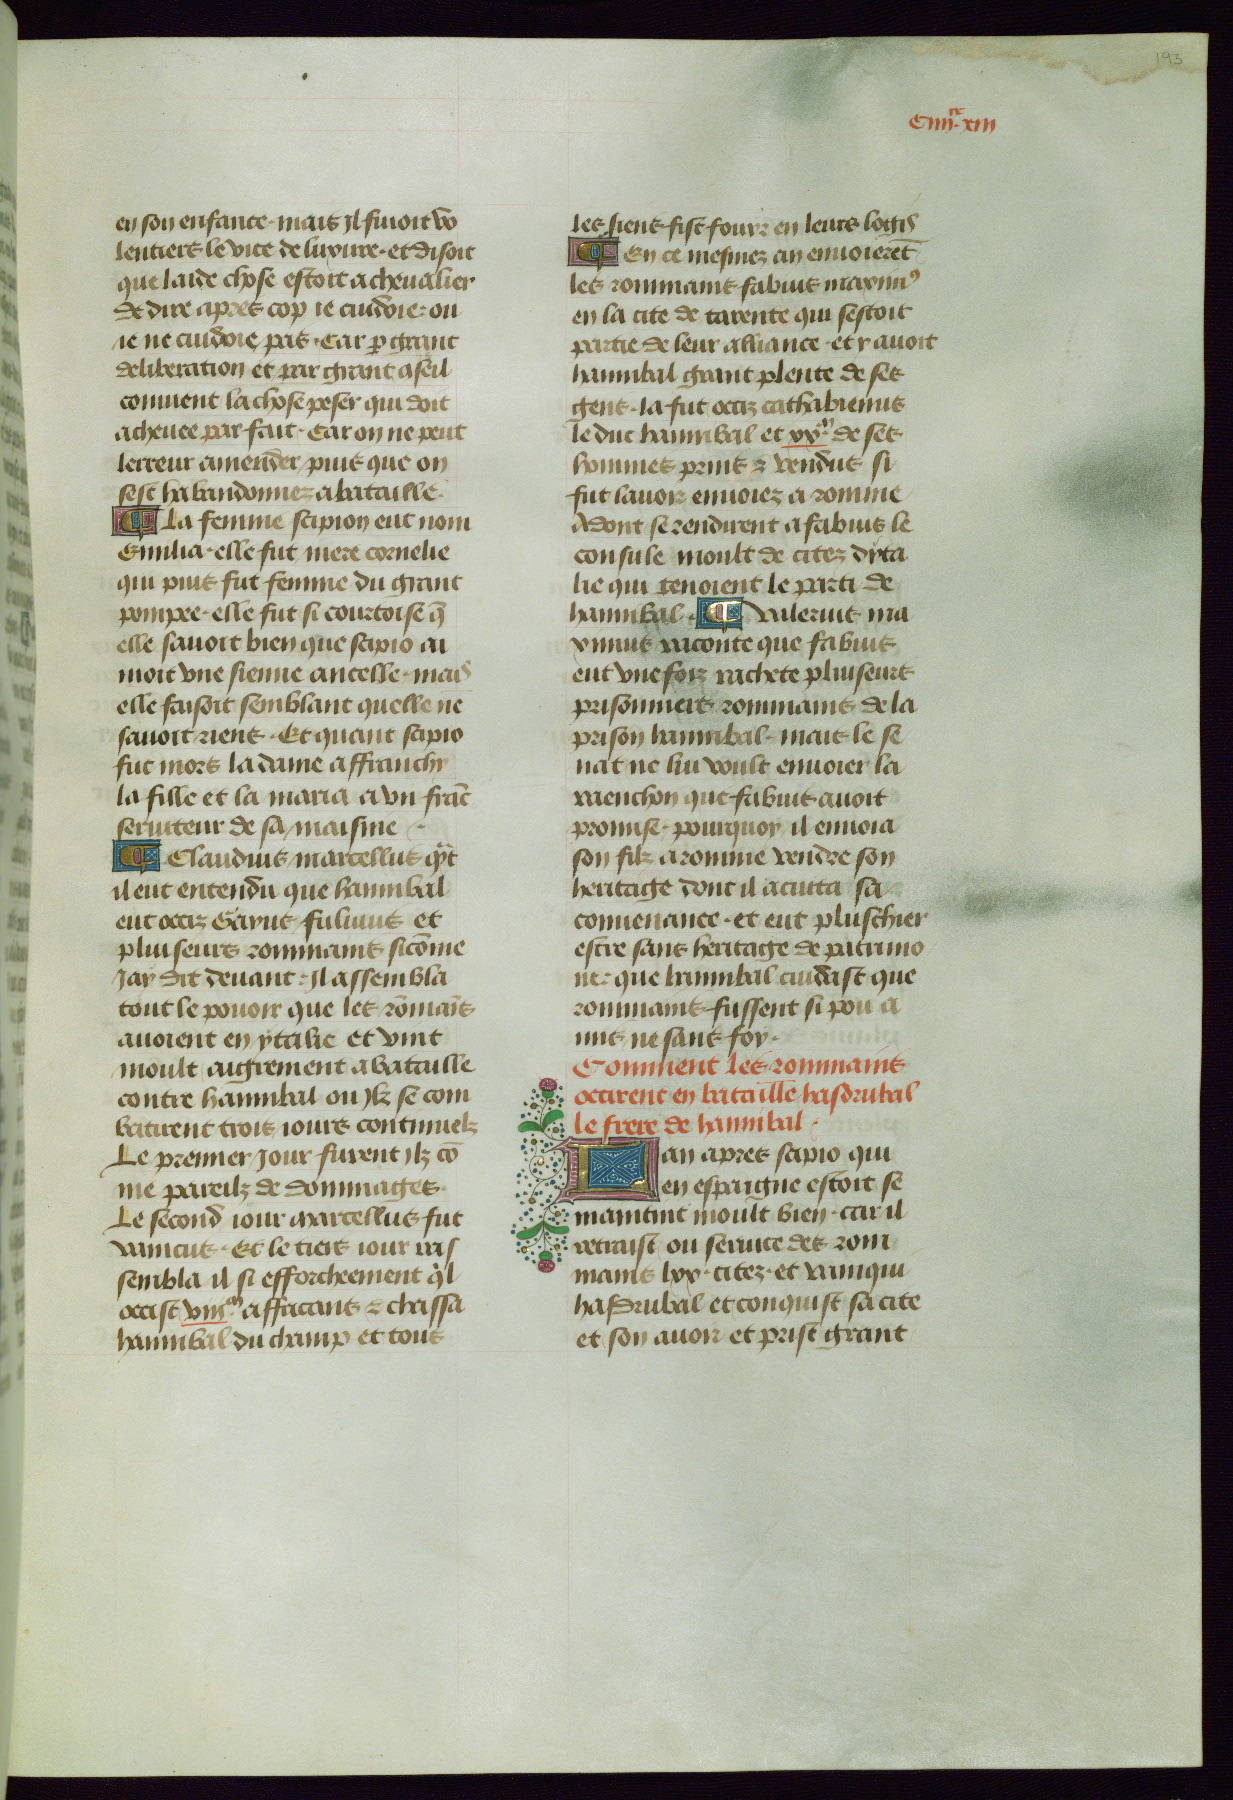 193
C iiij.xx xiij
en son enfance. mais jl fuioit vo
lentiers le vice de luxure. et disoit
que laide chose estoit a chevalier
de dire apres cop ie cuidoie. ou
ie ne cuidoie pas. Car p̲ grant
deliberation et par grant aseil
convient la chose peser qui doit
achevee par fait. Car on ne peut
lerreur amender puis que on
sest habandonnez a bataille.
La femme scipion eut nom
Emilia. elle fut mere cornelie
qui puis fut femme du grant
pompee. elle fut si courtoise q̄
elle savoit bien que scipio ai
moit vne sienne ancelle. mais
elle faisoit semblant quelle ne
savoit riens. Et quant scipio
fut mors la dame affranchy
la fille et la maria a vn franc̄
serviteur de sa maisnie.
Claudius marcellus qn̄t
il eut entendu que hannibal
eut occiz Gayus fuluius et
pluiseurs rommains sicōme
Jay dit devant. Jl assembla
tout le povoir que les rōmaīs
avoient en ytalie et vint
moult aigrement a bataille
contre hannibal ou ylz se com
batirent trois iours continuelz
Le premier jour furent ylz cō
me pareilz de dommages.
Le second iour marcellus fut
vaincus. Et le tiers iour ras
sembla il si efforcheement q̓l
occist viijm. affricans ⁊ chassa
hannibal du champ et tous
les siens fist fouyr en leurs logis
En ce mesmez an envoierēt
les rommains fabius maximꝰ
en la cite de tarente qui sestoit
partie de leur alliance. et y avoit
hannibal grant plente de ses
gens. la fut occiz cathabienus
le duc hannibal et xxm. de ses
hommes prins ⁊ vendus si
fut lavoir envoiez a romme
Adont se rendirent a fabius le
consule moult de citez dyta
lie qui tenoient le parti de
hannibal. Valerius ma
ximus raconte que fabius
eut vne foiz rachete pluiseurs
prisonniers rommains de la
prison hannibal. mais le se
nat ne luy voult envoier la
raenchon que fabius avoit
promise. pourquoy il envoia
son filz a romme vendre son
heritage dont il acuita sa
convenance. et eut plus chier
estre sans heritage de patrimo
ne. que hannibal cuidast que
rommains fussent si pou a
mis ne sans foy.
Comment les rommains
occirent en bataille hasdrubal
le frere de hannibal.
Lan apres scipio qui
en espaigne estoit se
maintint moult bien. car il
retraist ou service des rom
mains lxx. citez. et vainqui
hasdrubal et conquist sa cite
et son avoir et prist grant